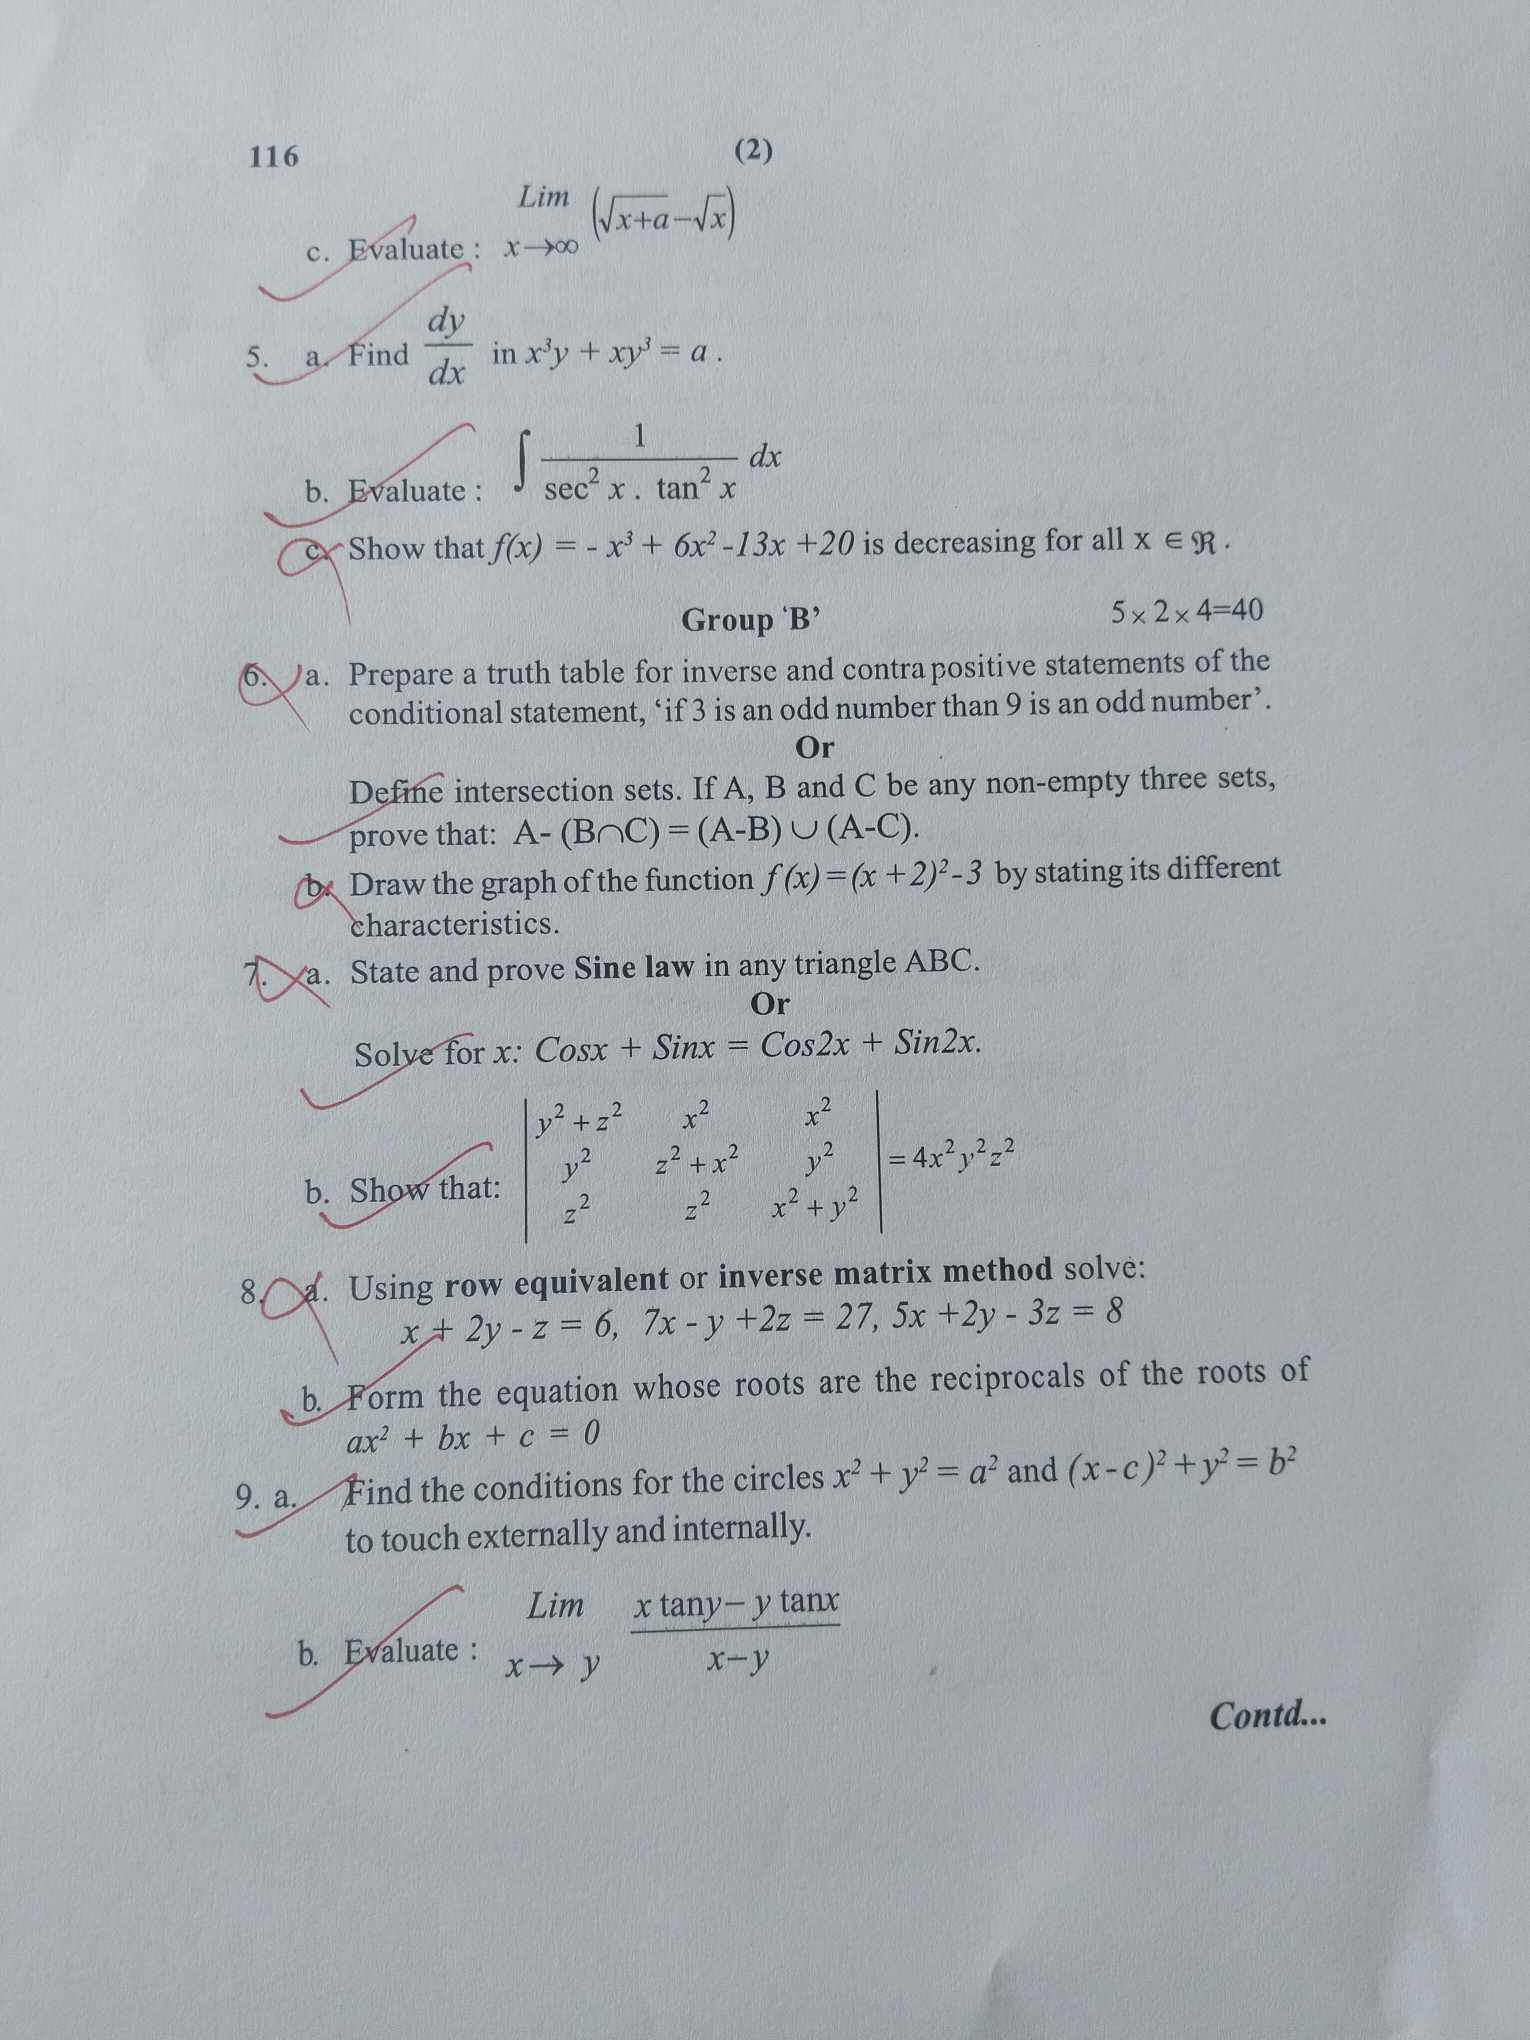 116 (2)
c. Evaluate : Lim x→∞ (√x+a − √x)
5. a. Find dy/dx in x³y + xy³ = a .
b. Evaluate : ∫ 1/(sec² x . tan² x) dx
c. Show that f(x) = - x³ + 6x² -13x +20 is decreasing for all x ∈ ℜ .
Group ‘B’ 5 × 2 × 4=40
6. a. Prepare a truth table for inverse and contra positive statements of the
conditional statement, ‘if 3 is an odd number than 9 is an odd number’.
Or
Define intersection sets. If A, B and C be any non-empty three sets,
prove that: A- (B∩C) = (A-B) ∪ (A-C).
b. Draw the graph of the function f (x) = (x +2)² -3 by stating its different
characteristics.
7. a. State and prove Sine law in any triangle ABC.
Or
Solve for x: Cosx + Sinx = Cos2x + Sin2x.
b. Show that: | y² + z² x² x² |
| y² z² + x² y² | = 4x² y² z²
| z² z² x² + y² |
8. a. Using row equivalent or inverse matrix method solve:
x + 2y - z = 6, 7x - y +2z = 27, 5x +2y - 3z = 8
b. Form the equation whose roots are the reciprocals of the roots of
ax² + bx + c = 0
9. a. Find the conditions for the circles x² + y² = a² and (x - c)² + y² = b²
to touch externally and internally.
b. Evaluate : Lim x→ y (x tany − y tanx)/(x−y)
Contd...